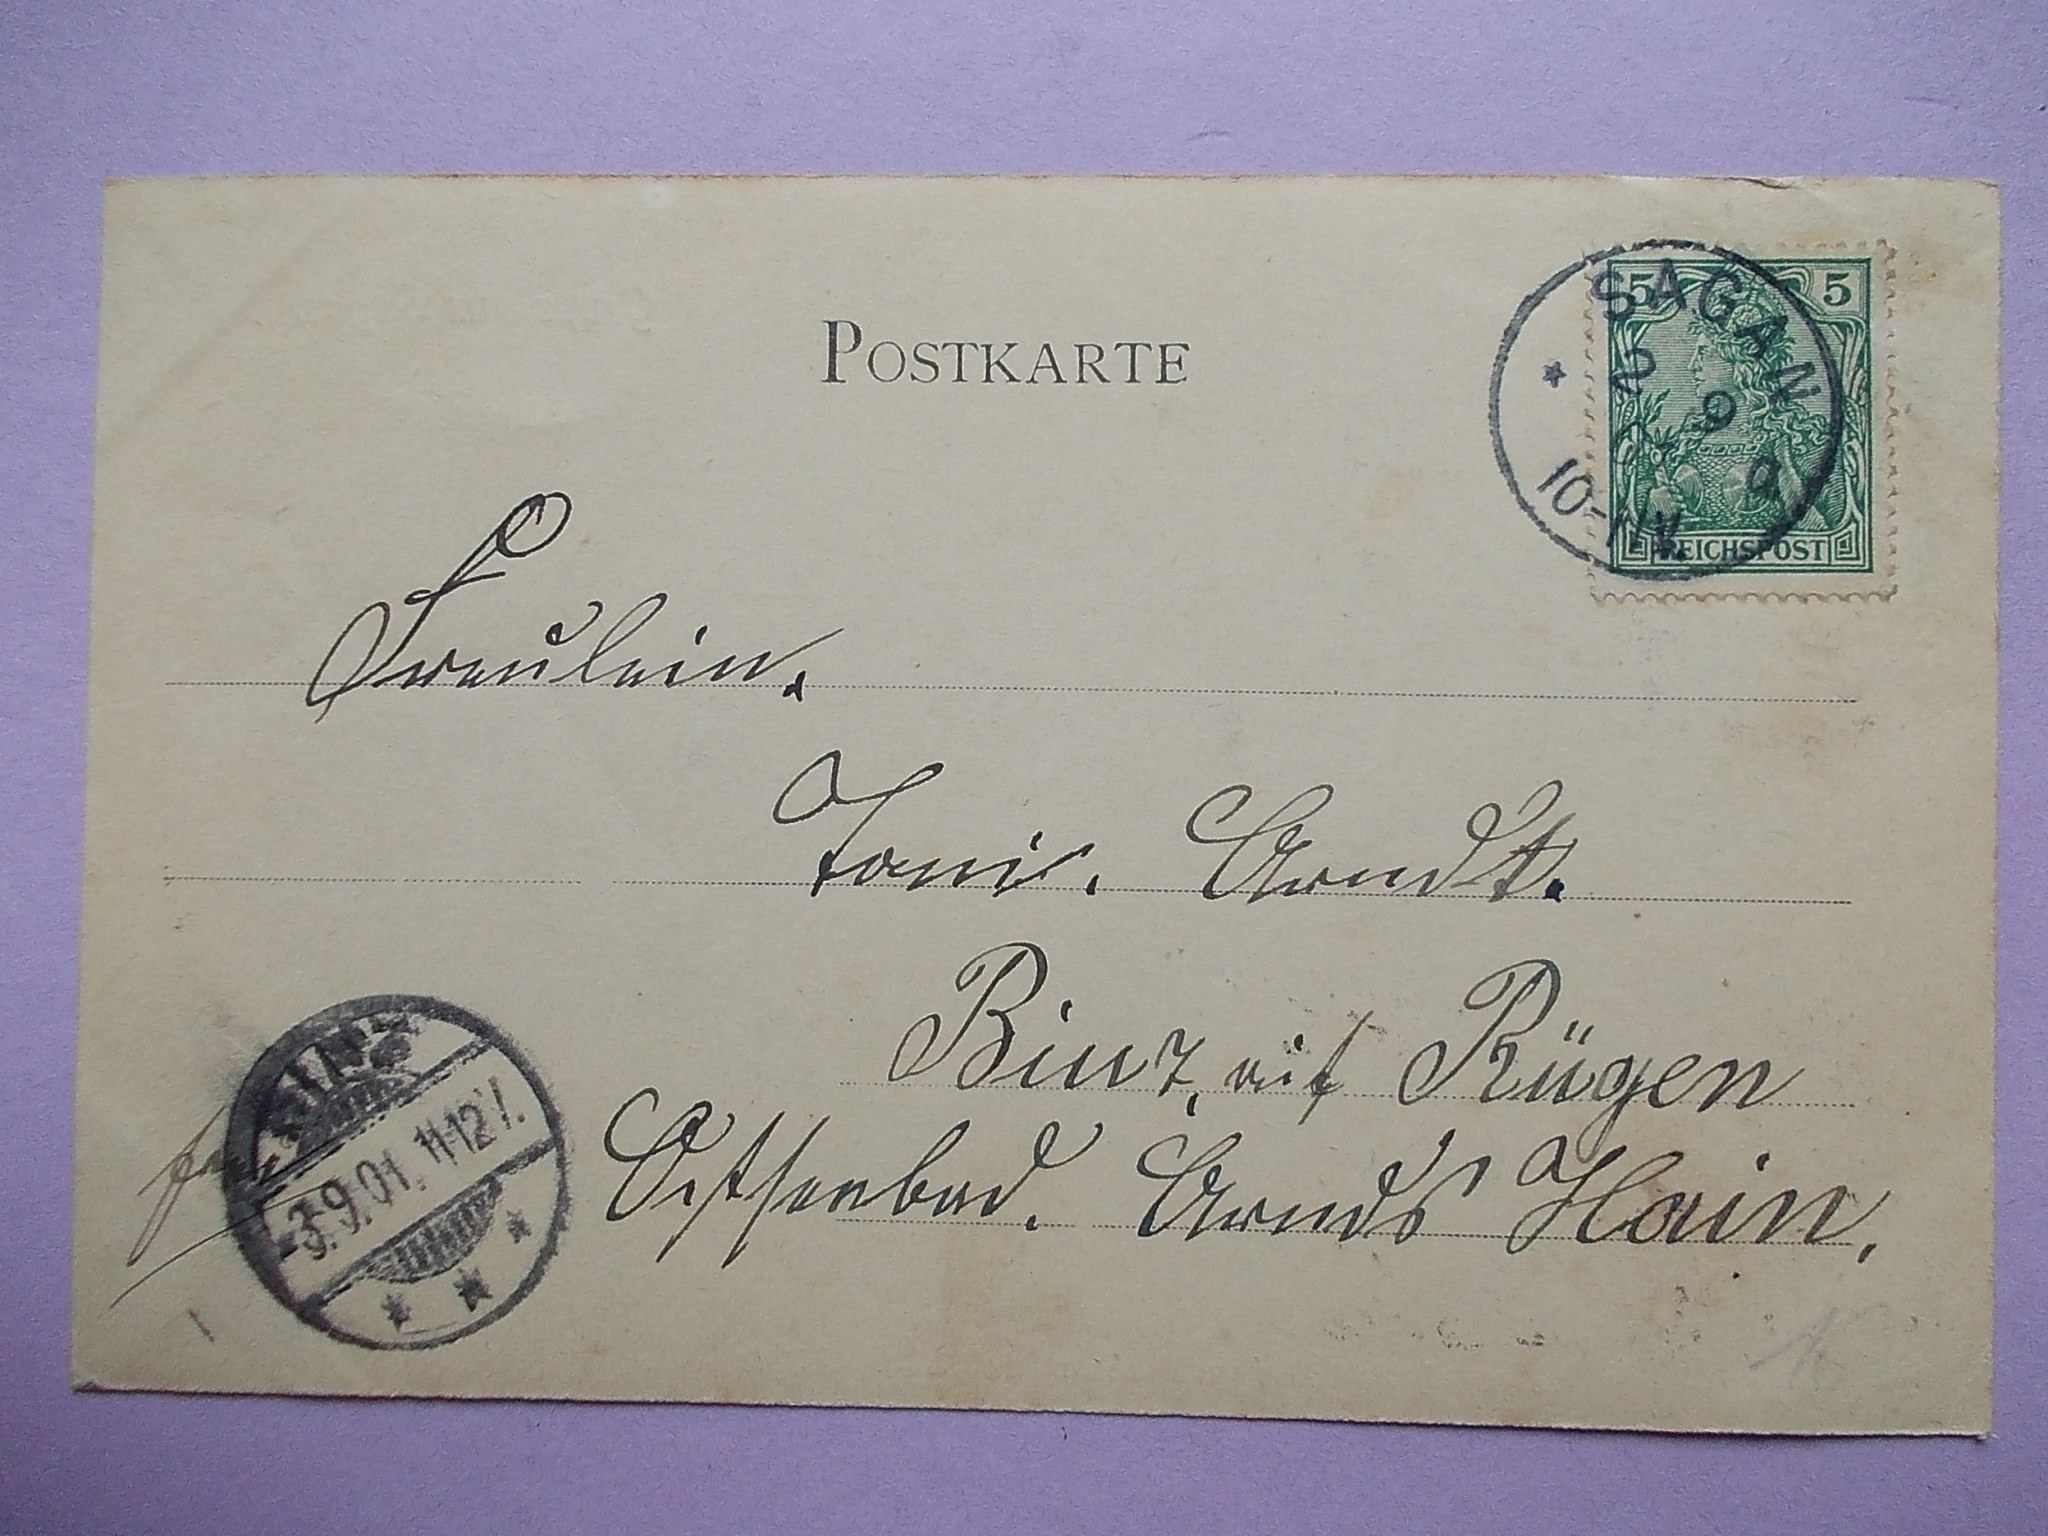 POSTKARTE
SAGAN
2 9
10-11V.
5 5
REICHSPOST
Fräulein.
Toni. Arndt.
Binz, auf Rügen
Ostseebad. Arnds Hain.
3.9.01. 11-12V.